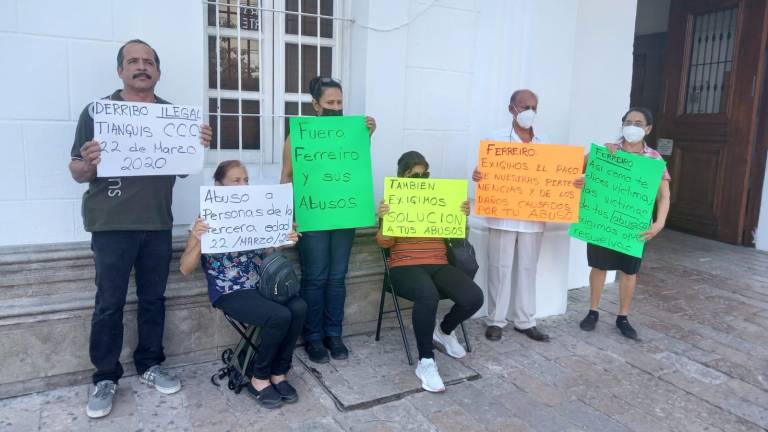 DERRIBO ILEGAL
TIANGUIS CCC
22 de MARZO
2020
ABUSO A
PERSONAS DE LA
TERCERA EDAD
22/MARZO/20
Fuera
Ferreiro y
sus
Abusos
TAMBIÉN
EXIGIMOS
SOLUCION
A TUS ABUSOS
FERREIRO
EXIGIMOS EL PAGO
DE NUESTRAS PERTE
NENCIAS Y DE LOS
DAÑOS CAUSADOS
POR TU ABUSO
FERREIRO:
Así como te
dices víctima,
las víctimas
de tus ¡abusos!